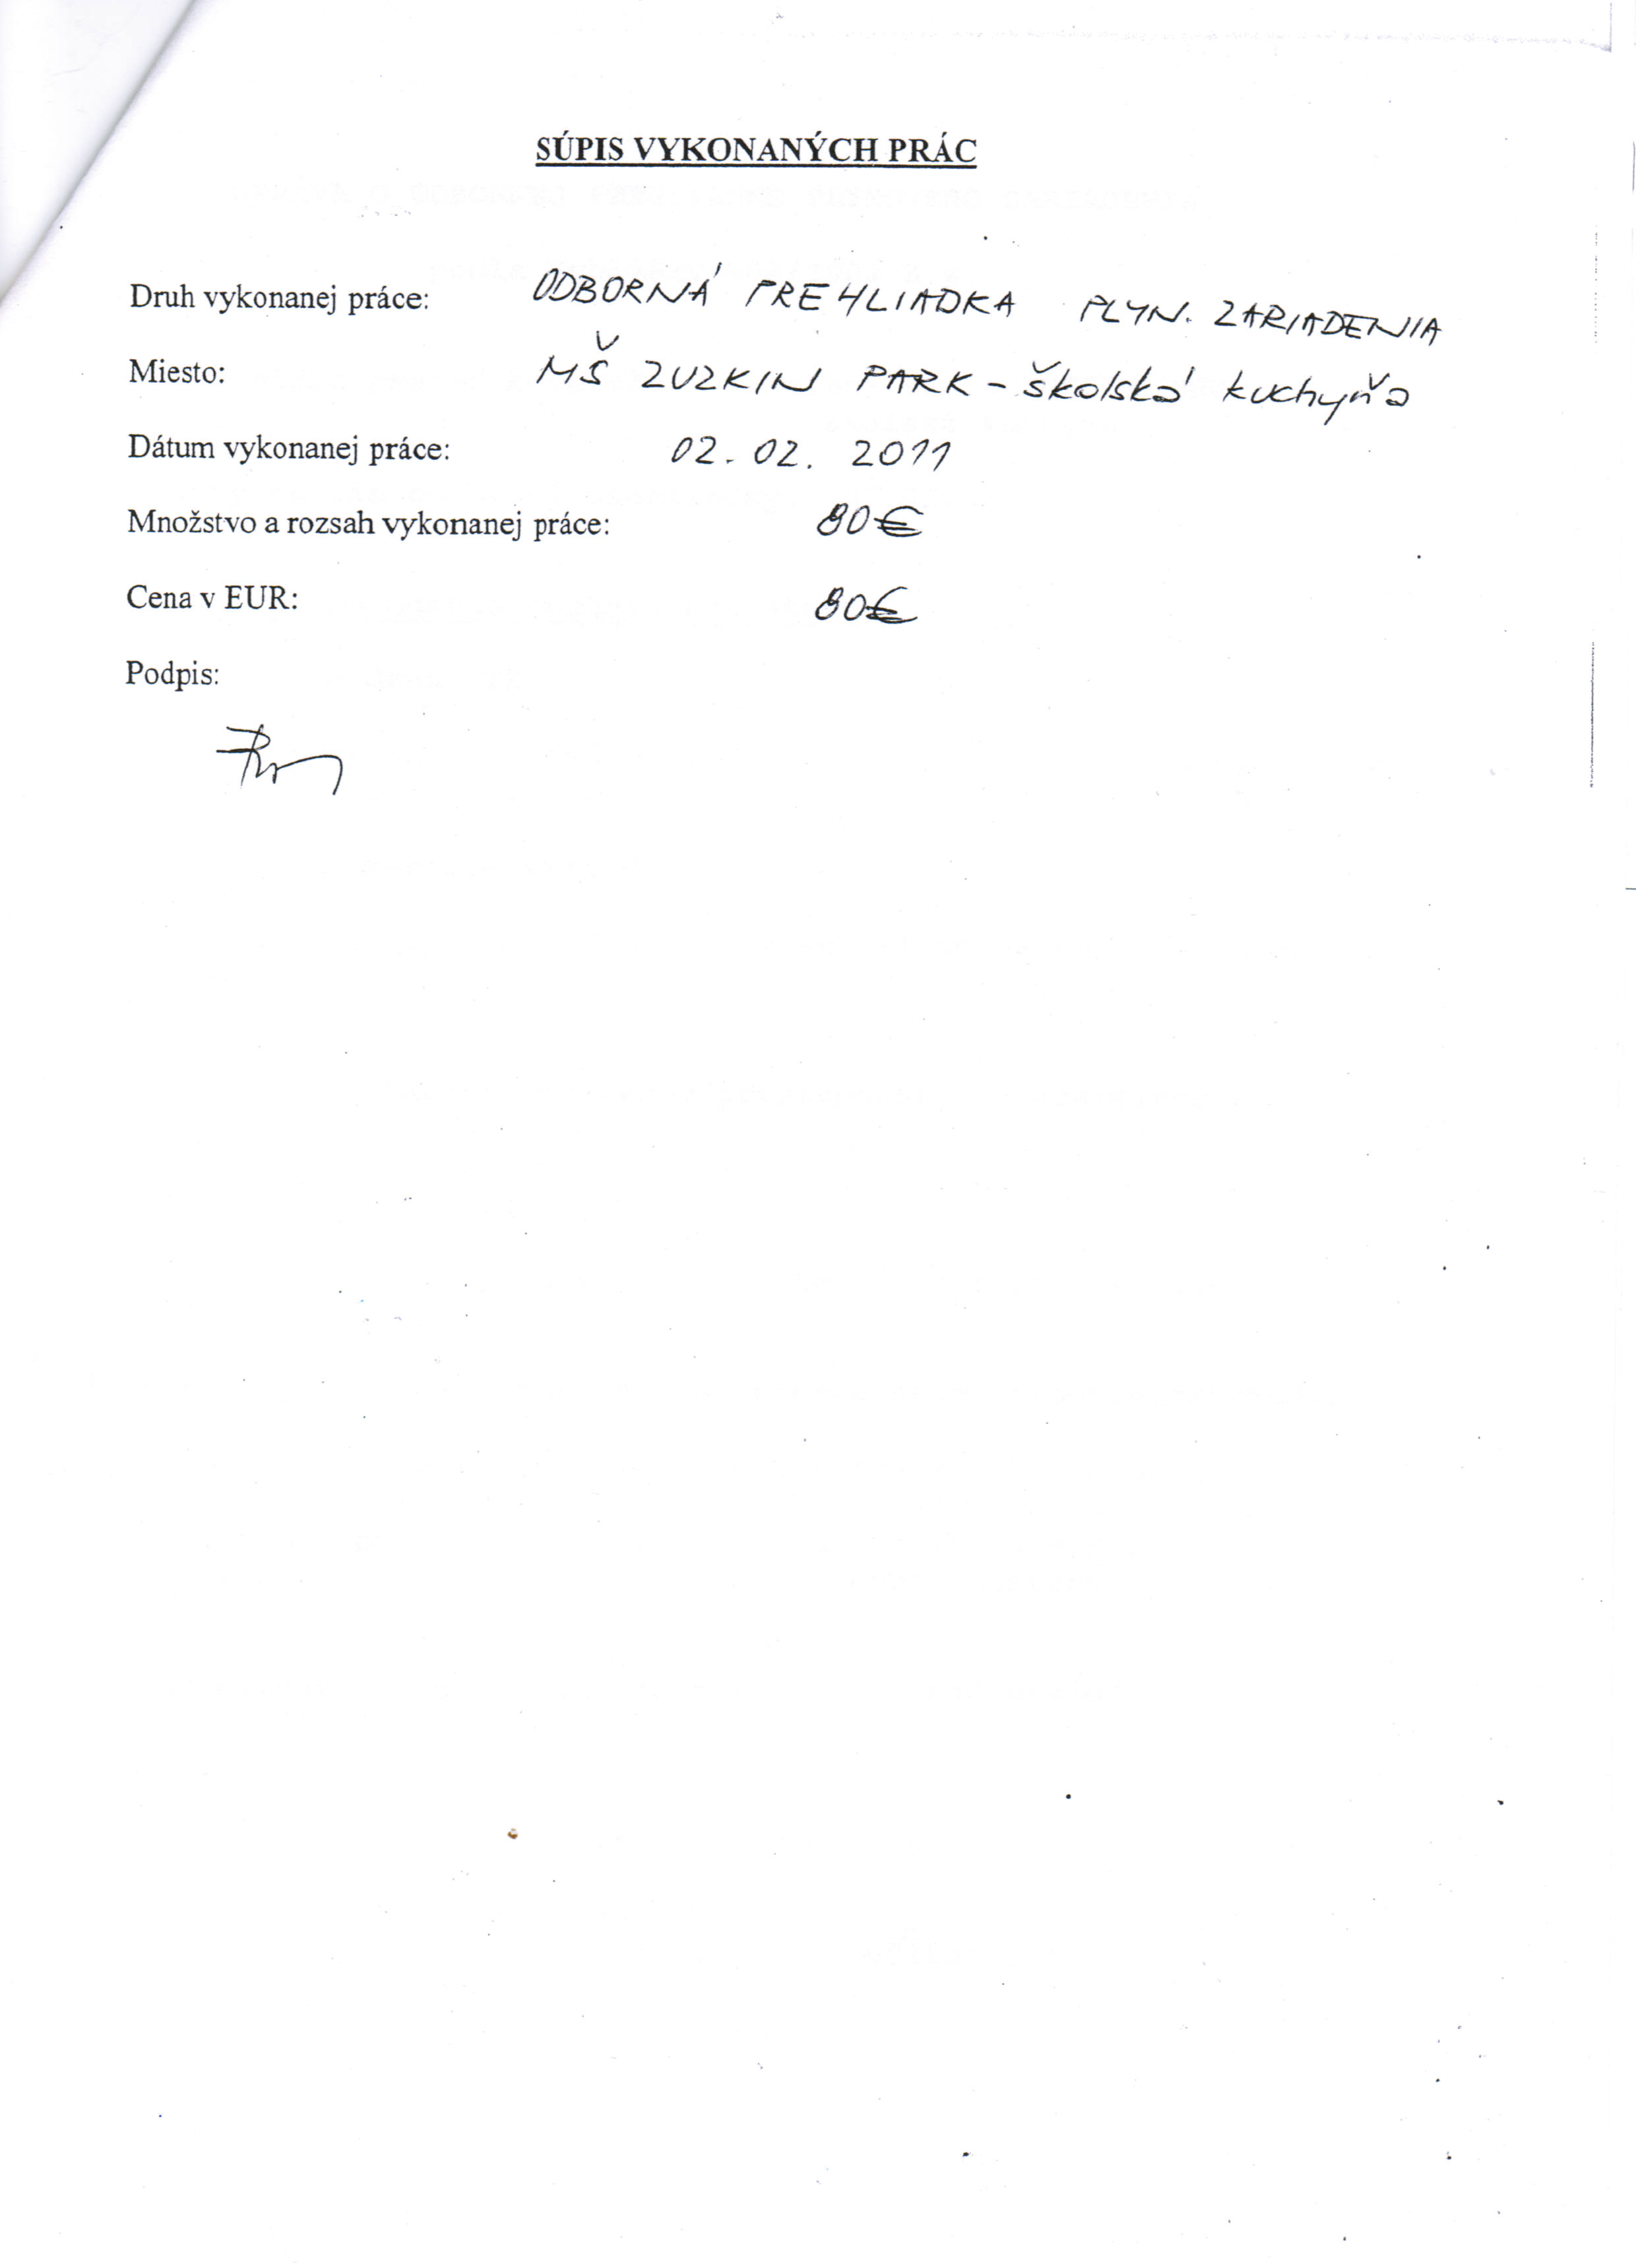 SÚPIS VYKONANÝCH PRÁC
Druh vykonanej práce: ODBORNÁ PREHLIADKA PLYN. ZARIADENIA
Miesto: MŠ ZUZKIN PARK - školská kuchyňa
Dátum vykonanej práce: 02. 02. 2011
Množstvo a rozsah vykonanej práce: 80€
Cena v EUR: 80€
Podpis: